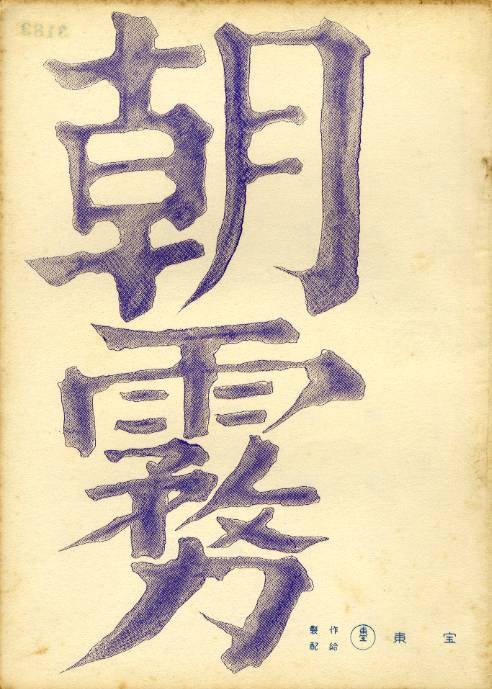 3183
朝霧
製作
配給
東宝
東宝